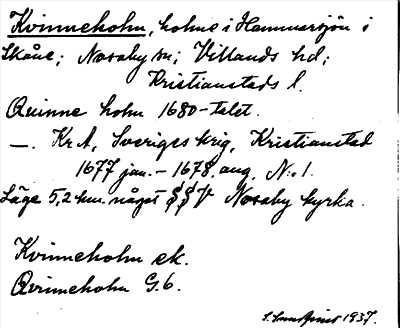 Kvinneholm, holme i Hammarsjön i
Skåne; Nosaby sn; Villands hd;
Kristianstads l.
Quinne holm 1680-talet.
—. Kr A, Sveriges krig, Kristianstad
1677 jan. – 1678 aug. N:o 1.
Läge 5,2 km. något S S V Nosaby kyrka.
Kvinneholm ek.
Qvinneholm G.b.
1937.